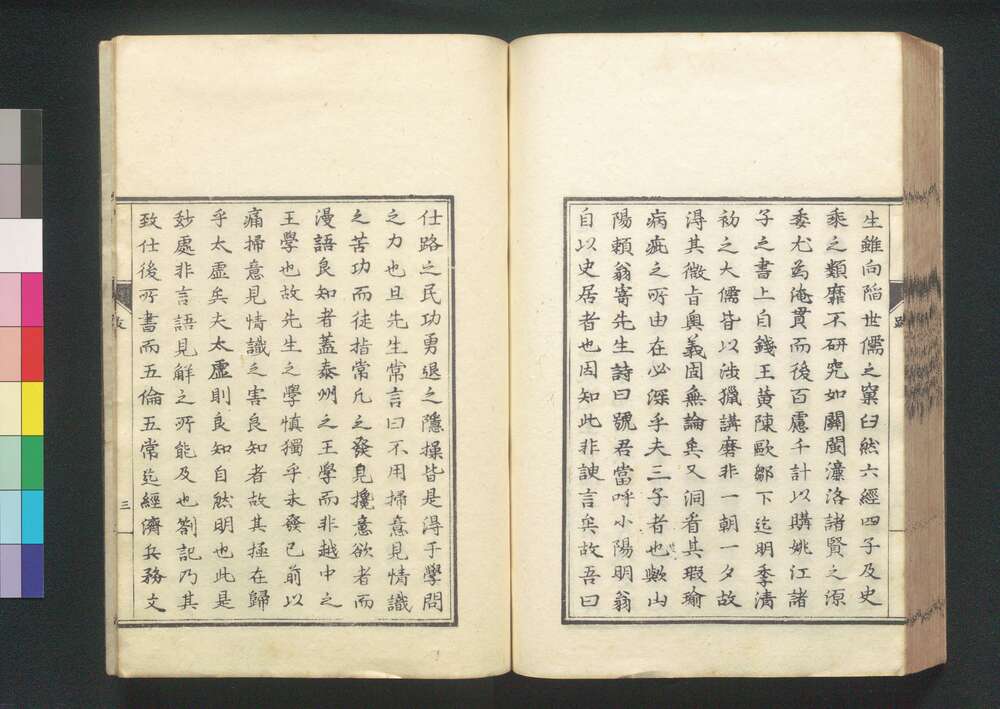 生雖向陷世儒之窠臼然六經四子及史
乘之類靡不研究如關閩濂洛諸賢之源
委尤為淹貫而後百慮千計以購姚江諸
子之書上自錢王黄陳歐鄒下迄明季清
初之大儒皆以涉獵講磨非一朝一夕故
得其微旨奥義固無論矣又洞看其瑕瑜
病疵之所由在必深乎夫三子者也歟山
陽頼翁寄先生詩曰號君當呼小陽明翁
自以史居者也因知此非諛言矣故吾曰
跋
仕路之民功勇退之隱操皆是得于學問
之力也且先生常言曰不用掃意見情識
之苦功而徒指常凡之發見攙意欲者而
漫語良知者蓋泰州之王學而非越中之
王學也故先生之學慎獨乎未發已前以
痛掃意見情識之害良知者故其極在歸
乎太虚矣夫太虚則良知自然明也此是
妙處非言語見解之所能及也劄記乃其
致仕後所書而五倫五常迄經濟兵務文
跋
三